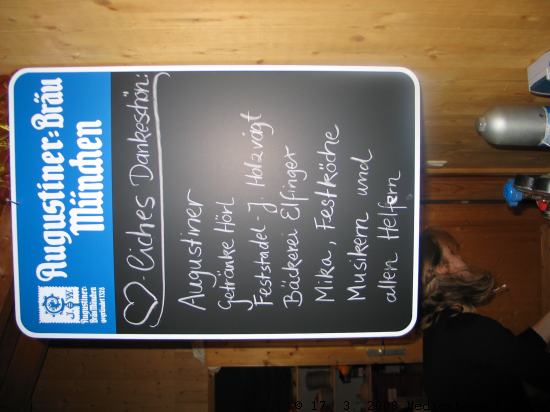 Augustiner-Bräu
München
Augustiner
Bräu München
gegründet 1328
♡-liches Dankeschön:
Augustiner
Getränke Hörl
Feststadel - J. Holzvoigt
Bäckerei Elfinger
Mika, Festköche
Musikern und
allen Helfern
© 17. 3. 2008